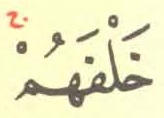 خَلْفَهُمْ